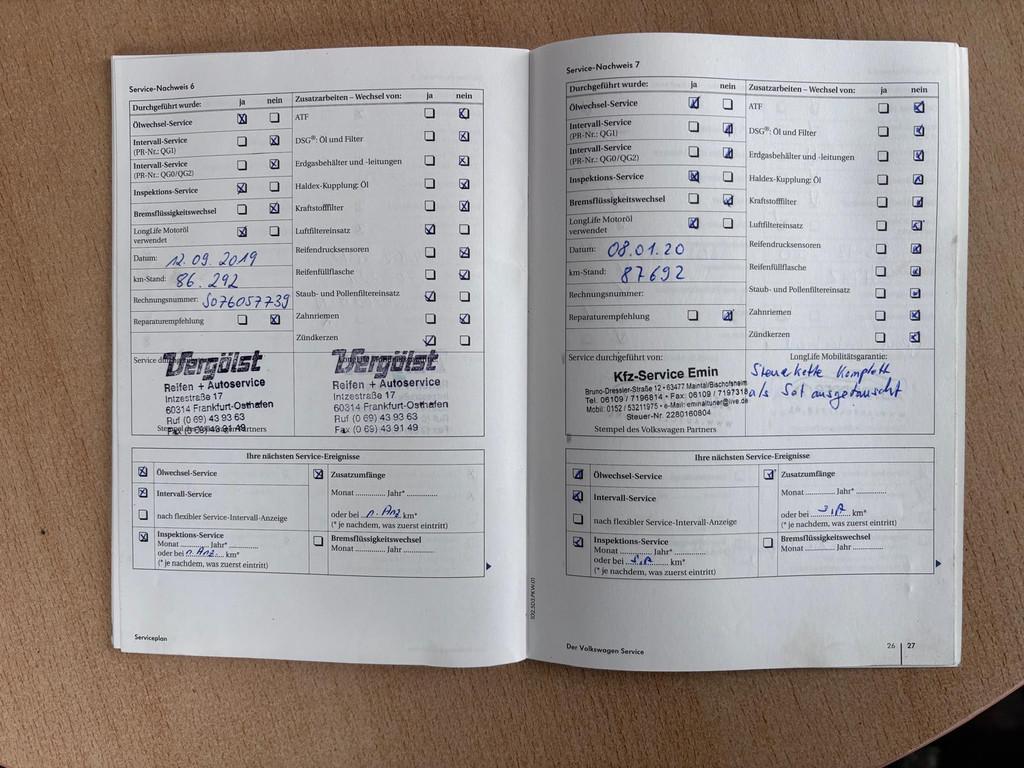 Service-Nachweis 6
Durchgeführt wurde: ja nein Zusatzarbeiten – Wechsel von: ja nein
Ölwechsel-Service
ATF
Intervall-Service
(PR-Nr.: QG1)
DSG®: Öl und Filter
Intervall-Service
(PR-Nr.: QG0/QG2)
Erdgasbehälter und -leitungen
Inspektions-Service
Haldex-Kupplung: Öl
Bremsflüssigkeitswechsel
Kraftstofffilter
LongLife Motoröl
verwendet
Luftfiltereinsatz
Datum: 12.09.2019
Reifendrucksensoren
km-Stand: 86.292
Reifenfüllflasche
Rechnungsnummer: 5076057739
Staub- und Pollenfiltereinsatz
Reparaturempfehlung
Zahnriemen
Zündkerzen
Vergölst
Reifen + Autoservice
Intzestraße 17
60314 Frankfurt-Osthafen
Ruf (0 69) 43 93 63
Fax (0 69) 43 91 49
Vergölst
Reifen + Autoservice
Intzestraße 17
60314 Frankfurt-Osthafen
Ruf (0 69) 43 93 63
Fax (0 69) 43 91 49
Ihre nächsten Service-Ereignisse
Ölwechsel-Service
Intervall-Service
nach flexibler Service-Intervall-Anzeige
Inspektions-Service
Monat ............... Jahr* ...............
oder bei n. Anz. km*
(* je nachdem, was zuerst eintritt)
Zusatzumfänge
Monat ............... Jahr* ...............
oder bei n. Anz km*
(* je nachdem, was zuerst eintritt)
Bremsflüssigkeitswechsel
Monat ............... Jahr ...............
Serviceplan
102.5D3.PKW.01
Service-Nachweis 7
Durchgeführt wurde: ja nein Zusatzarbeiten – Wechsel von: ja nein
Ölwechsel-Service
ATF
Intervall-Service
(PR-Nr.: QG1)
DSG®: Öl und Filter
Intervall-Service
(PR-Nr.: QG0/QG2)
Erdgasbehälter und -leitungen
Inspektions-Service
Haldex-Kupplung: Öl
Bremsflüssigkeitswechsel
Kraftstofffilter
LongLife Motoröl
verwendet
Luftfiltereinsatz
Datum: 08.01.20
Reifendrucksensoren
km-Stand: 87692
Reifenfüllflasche
Rechnungsnummer:
Staub- und Pollenfiltereinsatz
Reparaturempfehlung
Zahnriemen
Zündkerzen
Service durchgeführt von:
Kfz-Service Emin
Bruno-Dressler-Straße 12 • 63477 Maintal/Bischofsheim
Tel. 06109 / 7196814 • Fax: 06109 / 7197318
Mobil: 0152 / 53211975 • e-Mail: eminaltuner@live.de
Steuer-Nr. 2280160804
Stempel des Volkswagen Partners
LongLife Mobilitätsgarantie:
Steuerkette Komplett
als Set ausgetauscht
Ihre nächsten Service-Ereignisse
Ölwechsel-Service
Intervall-Service
nach flexibler Service-Intervall-Anzeige
Inspektions-Service
Monat ............... Jahr* ...............
oder bei ............... km*
(* je nachdem, was zuerst eintritt)
Zusatzumfänge
Monat ............... Jahr* ...............
oder bei ............... km*
(* je nachdem, was zuerst eintritt)
Bremsflüssigkeitswechsel
Monat ............... Jahr ...............
Der Volkswagen Service
26 27